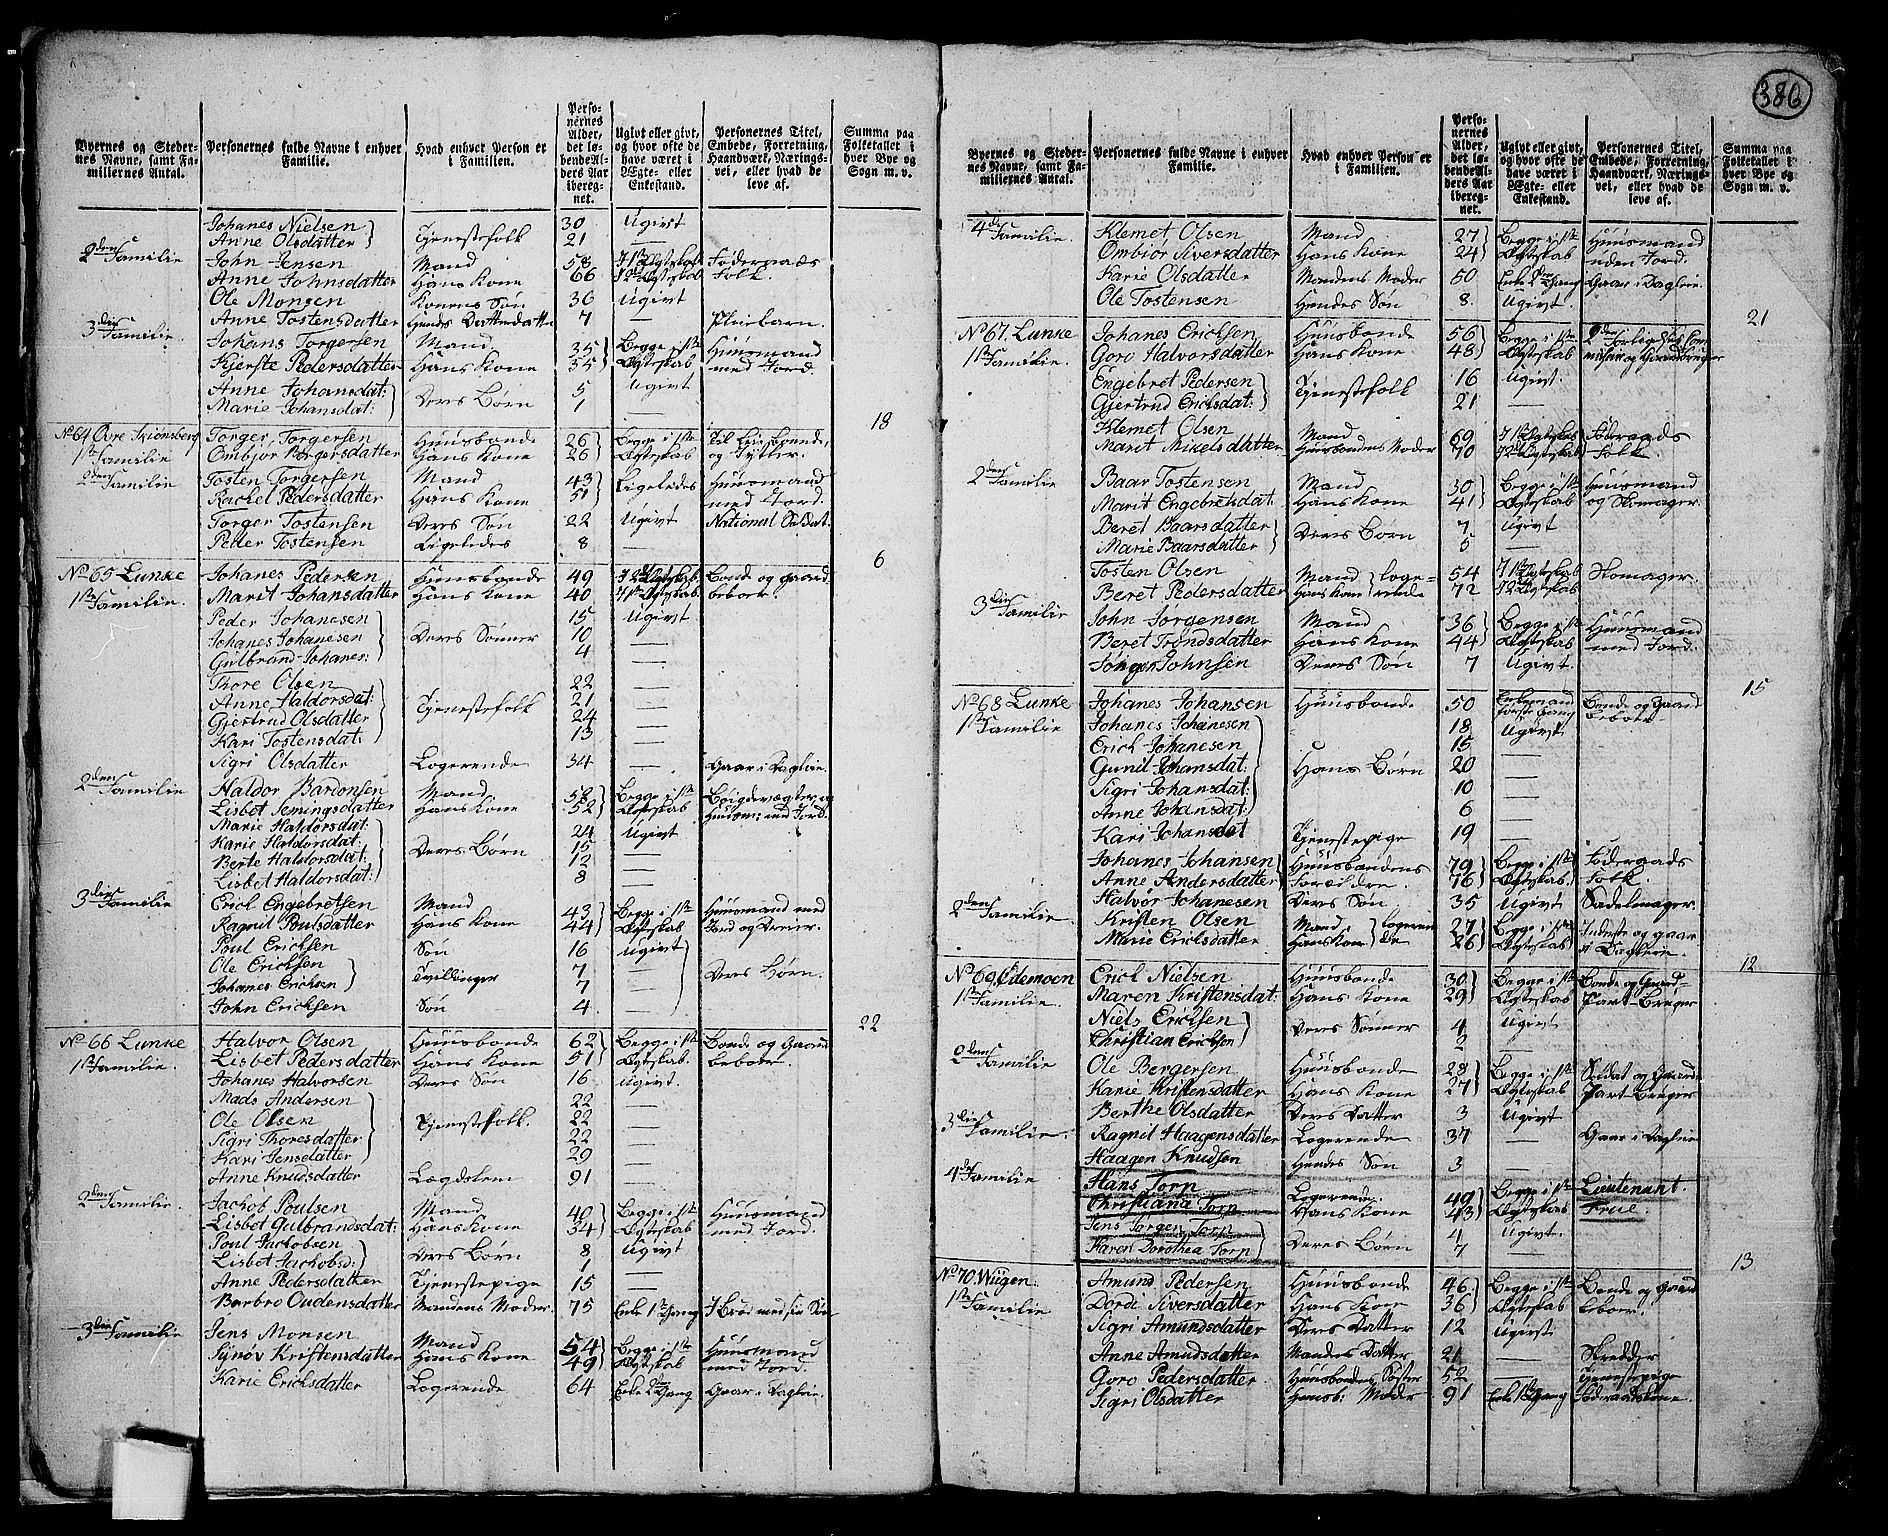 386
Byernes og Stedernes Navne, samt Familiernes Antal. | Personernes fulde Navne i enhver Familie. | Hvad enhver Person er i Familien. | Personernes Alder, det løbende Alders Aar iberegnet. | Ugivt eller givt, og hvor ofte de have været i Ægte- eller Enkestand. | Personernes Titel, Embede, Forretning, Haandværk, Næringsvei, eller hvad de leve af. | Summa paa Folketallet i hver Bye og Sogn m. v.
Johanes Nielsen | Tjenestefolk | 30 | Ugivt
Anne Olsdatter | 21
2den Familie | John Jensen | Mand | 58 | J 1ste Ægteskab | Føderaads
Anne Johnsdatter | Hans Kone | 66 | J 2det Ægteskab | Folk.
Ole Monsen | Konens Søn | 36 | Ugivt
Anne Tostensdatter | Hendes Datterdatter | 7 | — | Pleiebarn.
3die Familie | Johans Torgersen | Mand | 35 | Begge i 1ste | Huusmand
Kjerste Pedersdatter | Hans Kone | 35 | Ægteskab | med Jord.
Anne Johansdatter | Deres Børn | 5 | Ugivt
Marie Johansdat: | 1 | — | 18
No 64 Øvre Skiønsberg | Torger Torgersen | Huusbonde | 26 | Begge i 1ste
1ste Familie | Ombjor Børgersdatter | Hans Kone | 26 | Ægteskab
2den Familie | Tosten Torgersen | Mand | 43 | Ligeledes | Huusmand
Rachel Pedersdatter | Hans Kone | 51 | med Jord.
Torger Tostensen | Deres Søn | 22 | Ugivt | National Soldat.
Peder Tostensen | Ligeledes | 8 | — | 6
No 65 Lunke | Johanes Pedersen | Huusbonde | 49 | J 2det Ægteskab | Bonde og Gaard
1ste Familie. | Marit Johansdatter | Hans Kone | 40 | J 1ste Ægteskab. | beboer.
Peder Johanesen | 15 | Ugivt
Johanes Johanesen | Deres Sønner | 10 | —
Gulbrand Johanes: | 4 | —
Thore Olsen | 22 | —
Anne Haldorsdat: | Tjenestefolk | 21 | —
Gjertrud Olsdatter | 24 | —
Kari Tostensdat: | 13 | —
Sigri Olsdatter | Logerende | 34 | — | Gaar i Dagleie.
2den Familie | Haldor Bardonsen | Mand | 52 | Begge i 1ste | Bøigdevægter og
Lisbet Semingsdatter | Hans Kone | 52 | Ægteskab | Huusm: med Jord.
Marie Haldorsdat: | 24 | Ugivt
Karie Haldorsdat: | Deres Børn | 15 | —
Berte Haldorsdat: | 12 | —
Lisbet Haldorsdat: | 8 | —
3die Familie | Erich Engebretsen | Mand | 43 | Begge i 1ste | Huusmand med
Ragnil Poulsdatter | Hans Kone | 44 | Ægteskab | Jord og Dreier.
Poul Erichsen | Søn | 16 | Ugivt
Ole Erichsen | Tvillinger | 7 | — | Deres Børn.
Johanes Erichsen | 7 | —
John Erichsen | Søn | 4 | — | 22
No 66 Lunke | Halvor Olsen | Huusbonde | 62 | Begge i 1ste | Bonde og Gaard
1ste Familie. | Lisbet Pedersdatter | Hans Kone | 51 | Ægteskab. | beboer.
Johanes Halvorsen | Deres Søn | 16 | Ugivt.
Mads Andersen | 22 | —
Ole Olsen | Tjenestefolk. | 22 | —
Sigri Thoresdatter | 22 | —
Kari Jensdatter | 29 | —
Anne Knudsdatter | Lægdslem | 91 | —
2den Familie. | Jachob Poulsen | Mand | 40 | Begge i 1ste | Huusmand
Lisbet Gulbrandsdat: | Hans Kone | 34 | Ægteskab | med Jord.
Poul Jachobsen | Deres Børn | 8 | Ugivt
Lisbet Jachobsd: | 1 | —
Anne Pedersdatter | Tjenestepige | 15 | —
Barbro Oudensdatter | Mandens Moder. | 75 | Enke 1ste Gang
3die Familie | Jens Monsen | Mand | 54 | Begge i 1ste | Huusmand
Synøv Kristensdatter | Hans Kone | 49 | Ægteskab | med Jord.
Karie Erichsdatter | Logerende | 64 | Enke 2den Gang | Gaar i Dagleie.
Byernes og Stedernes Navne, samt Familiernes Antal. | Personernes fulde Navne i enhver Familie. | Hvad enhver Person er i Familien. | Personernes Alder, det løbende Alders Aar iberegnet. | Ugivt eller givt, og hvor ofte de have været i Ægte- eller Enkestand. | Personernes Titel, Embede, Forretning, Haandværk, Næringsvei, eller hvad de leve af. | Summa paa Folketallet i hver Bye og Sogn m. v.
4de Familie. | Klemet Olsen | Mand | 27 | Begge i 1ste | Huusmand
Ombior Siversdatter | Hans Kone | 24 | Ægteskab | uden Jord.
Karie Olsdatter | Mandens Moder | 50 | Enke 2den Gang | Gaar i Dagleie.
Ole Tostensen | Hendes Søn | 8. | Ugivt | 21
No 67. Lunke | Johanes Erichsen | Huusbonde | 56 | Begge i 1ste
1ste Familie | Goro Halvorsdatter | Hans Kone | 48 | Ægteskab
Engebret Pedersen | Tjenestefolk | 16 | Ugivt.
Gjertrud Erichsdat: | 21 | —
Klemet Olsen | Mand | 69 | J 1ste Ægteskab | Føderaads
Marit Mikelsdatter | Huusbondens Moder | 70 | J 2det Ægteskab | Folk.
2den Familie | Baar Tostensen | Mand | 30 | Begge i 1ste | Huusmand
Marit Engebretsdat: | Hans Kone | 41 | Ægteskab | og Skomager.
Beret Baarsdatter | Deres Børn | 7 | Ugivt
Marie Baarsdatter | 5 | —
Tosten Olsen | Mand | logerende | 54 | J 1ste Ægteskab | Skomager.
Beret Pedersdatter | Hans Kone | 72 | J 2det Ægteskab
3die Familie | John Jørgensen | Mand | 36 | Begge i 1ste | Huusmand
Beret Trondsdatter | Hans Kone | 44 | Ægteskab | med Jord.
Jørgen Johnsen | Deres Søn | 7 | Ugivt. | 15
No 68 Lunke | Johanes Johansen | Huusbonde | 50 | Enkemand første Gang | Bonde og Gaard beboer
1ste Familie | Johanes Johanesen | 18 | Ugivt
Erich Johanesen | 15 | —
Gunil Johansdat: | Hans Børn | 20 | —
Sigri Johansdat: | 10 | —
Anne Johansdat: | 6 | —
Kari Johansdat | Tjenestepige | 19 | —
Johanes Johansen | Huusbondens | 79 | Begge i 1ste | Føderaads
Anne Andersdatter | Forældre. | 76 | Ægteskab. | Folk.
Halvor Johanesen | Deres Søn. | 35 | Ugivt | Sadelmager.
2den Familie | Kristen Olsen | Mand | logerende | 27 | Begge i 1ste | Inderste og gaar
Marie Erichsdatter | Hans Kone | 26 | Ægteskab | i Dagleie. | 12
No 69 Ødemoen | Erich Nielsen | Huusbonde | 30 | Begge i 1ste | Bonde og Gaard-
1ste Familie. | Maren Kristensdat: | Hans Kone | 29 | Ægteskab | Part-Bruger
Niels Erichsen | Deres Sønner | 4 | Ugivt
Christian Erichsen | 2 | —
2den Familie | Ole Bergersen | Huusbonde | 28 | Begge i 1ste | Soldat og Gaard
Karie Kristensdatter | Hans Kone | 27 | Ægteskab | Part-Bruger
Berthe Olsdatter | Deres Datter | 3 | Ugivt
3die Familie. | Ragnil Haagensdatter | Logerende | 37 | — | Gaar i Dagleie
Haagen Knudsen | Hendes Søn | 3 | —
4de Familie | Hans Torp | Logerende. | 49 | Begge i 1ste | Lieutenant.
Christiana Torp | Hans Kone | 43 | Ægteskab | Frue.
Jens Jørgen Torp | Deres Børn | 4 | Ugivt.
Karen Dorothea Torp | 7 | — | 13
No 70. Wiigen | Amund Pedersen | Huusbonde | 46. | Begge i 1ste | Bonde og Gaard
1ste Familie | Dordi Siversdatter | Hans Kone | 36 | Ægteskab | beboer.
Sigri Amundsdatter | Deres Datter | 12 | Ugivt
Anne Amudsdatter | Mandens Datter | 21 | — | Skredder
Goro Pedersdatter | Huusbondens Søster | 52 | — | Tjenestepige
Sigri Olsdatter | Huusb: Moder | 91 | Enke 1ste Gang | Føderaadskone.